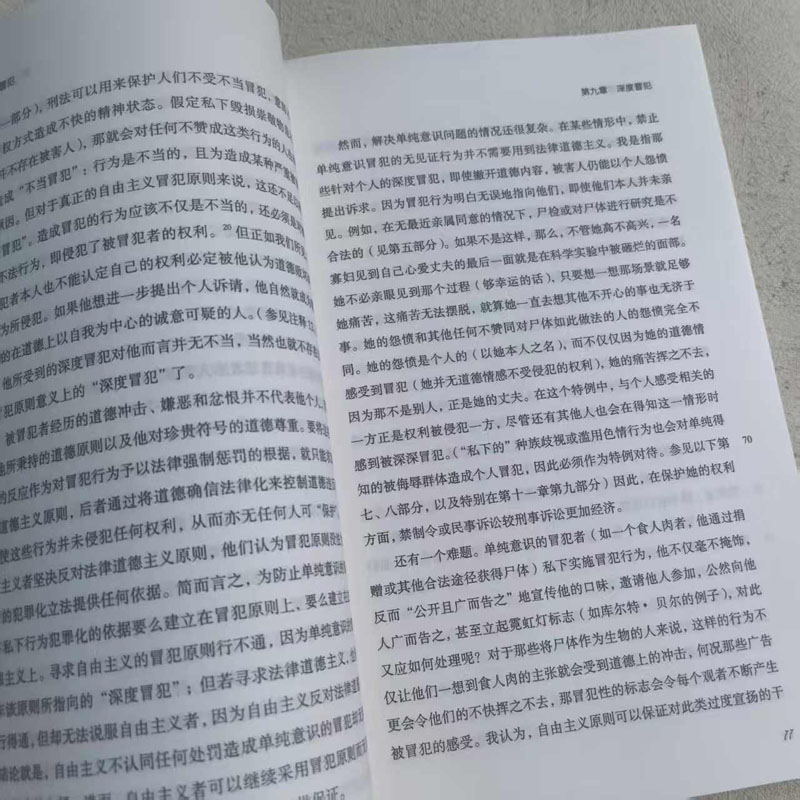 冒犯
一部分），刑法可以用来保护人们不受不当冒犯，
权方式造成不快的精神状态。假定私下毁损崇敬
并不存在被害人），那就会对任何不赞成这类行为的人
成“不当冒犯”；行为是不当的，且为造成某种严重
原因。但对于真正的自由主义冒犯原则来说，这还不
冒犯”。造成冒犯的行为应该不仅是不当的，还必须是
不法行为，即侵犯了被冒犯者的权利。²⁰ 但正如我们所
犯者本人也不能认定自己的权利必定被他认为道德
为所侵犯。如果他想进一步提出个人诉请，他自然就成
的在道德上以自我为中心的诚意可疑的人。（参见注释
他所受到的深度冒犯对他而言并无不当，当然也就不存
犯原则意义上的“深度冒犯”了。
被冒犯者经历的道德冲击、嫌恶和忿恨并不代表他个人
他所秉持的道德原则以及他对珍贵符号的道德尊重。要将
的反应作为对冒犯行为予以法律强制惩罚的根据，就只能
道德主义原则，后者通过将道德确信法律化来控制道德
使这些行为并未侵犯任何权利，从而亦无任何人可“保护
主义者坚决反对法律道德主义原则，他们认为冒犯原则没
的犯罪化立法提供任何依据。简而言之，为防止单纯意识
私下行为犯罪化的依据要么建立在冒犯原则上、要么建立在
主义上。寻求自由主义的冒犯原则行不通，因为单纯意识
该原则所指向的“深度冒犯”；但若寻求法律道德主义，
行得通，但却无法说服自由主义者，因为自由主义反对法律道
结论就是，自由主义不认同任何处罚造成单纯意识的冒犯
自由主义者可以继续采用冒犯原则而
保证。
第九章 深度冒犯
然而，解决单纯意识问题的情况还很复杂。在某些情形中，禁止
单纯意识冒犯的无见证行为并不需要用到法律道德主义。我是指那
些针对个人的深度冒犯，即使撇开道德内容，被害人仍能以个人怨愤
提出诉求。因为冒犯行为明白无误地指向他们，即使他们本人并未亲
见。例如，在无最近亲属同意的情况下，尸检或对尸体进行研究是不
合法的（见第五部分）。如果不是这样，那么，不管她高不高兴，一名
寡妇见到自己心爱丈夫的最后一面就是在科学实验中被砸烂的面部。
她不必亲眼见到那个过程（够幸运的话），只要想一想那场景就足够
她痛苦，这痛苦无法摆脱，就算她一直去想其他不开心的事也无济于
事。她的怨愤和其他任何不赞同对尸体如此做法的人的怨愤完全不
同。她的怨愤是个人的（以她本人之名），而不仅仅因为她的道德情
感受到冒犯（她并无道德情感不受侵犯的权利），她的痛苦挥之不去，
因为那不是别人，正是她的丈夫。在这个特例中，与个人感受相关的
一方正是权利被侵犯一方，尽管还有其他人也会在得知这一情形时
感到被深深冒犯。（“私下的”种族歧视或滥用色情行为也会对单纯得
知的被侮辱群体造成个人冒犯，因此必须作为特例对待。参见以下第
70
七、八部分，以及特别在第十一章第九部分）因此，在保护她的权利
方面，禁制令或民事诉讼较刑事诉讼更加经济。
还有一个难题。单纯意识的冒犯者（如一个食人肉者，他通过捐
赠或其他合法途径获得尸体）私下实施冒犯行为，他不仅毫不掩饰，
反而“公开且广而告之”地宣传他的口味，邀请他人参加，公然向他
人广而告之，甚至立起霓虹灯标志（如库尔特·贝尔的例子），对此
又应如何处理呢？对于那些将尸体作为生物的人来说，这样的行为不
仅让他们一想到食人肉的主张就会受到道德上的冲击，何况那些广告
更会令他们的不快挥之不去，那冒犯性的标志会令每个观者不断产生
被冒犯的感受。我认为，自由主义原则可以保证对此类过度宣扬的干
77